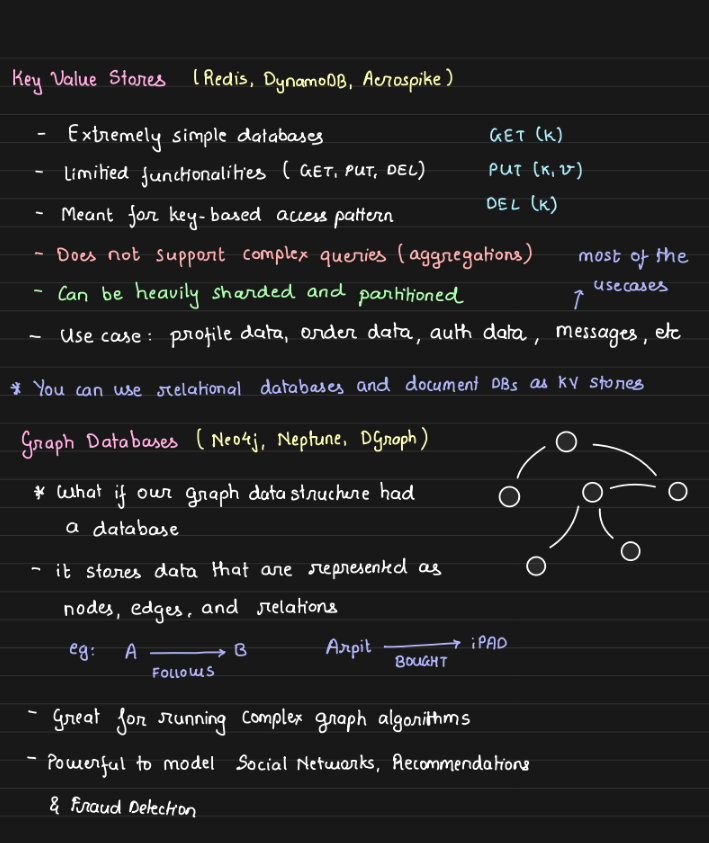 Key Value Stores (Redis, DynamoDB, Aerospike)
- Extremely simple databases
GET (K)
- Limited functionalities (GET, PUT, DEL)
PUT (K, V)
- Meant for key-based access pattern
DEL (K)
- Does not support complex queries (aggregations)
most of the
usecases
- Can be heavily sharded and partitioned
- Use case: profile data, order data, auth data, messages, etc
* You can use relational databases and document DBs as KV stores
Graph Databases (Neo4j, Neptune, DGraph)
* What if our graph data structure had
a database
- it stores data that are represented as
nodes, edges, and relations
eg: A → B Arpit → iPAD
FOLLOWS BOUGHT
- Great for running complex graph algorithms
- Powerful to model Social Networks, Recommendations
& Fraud Detection